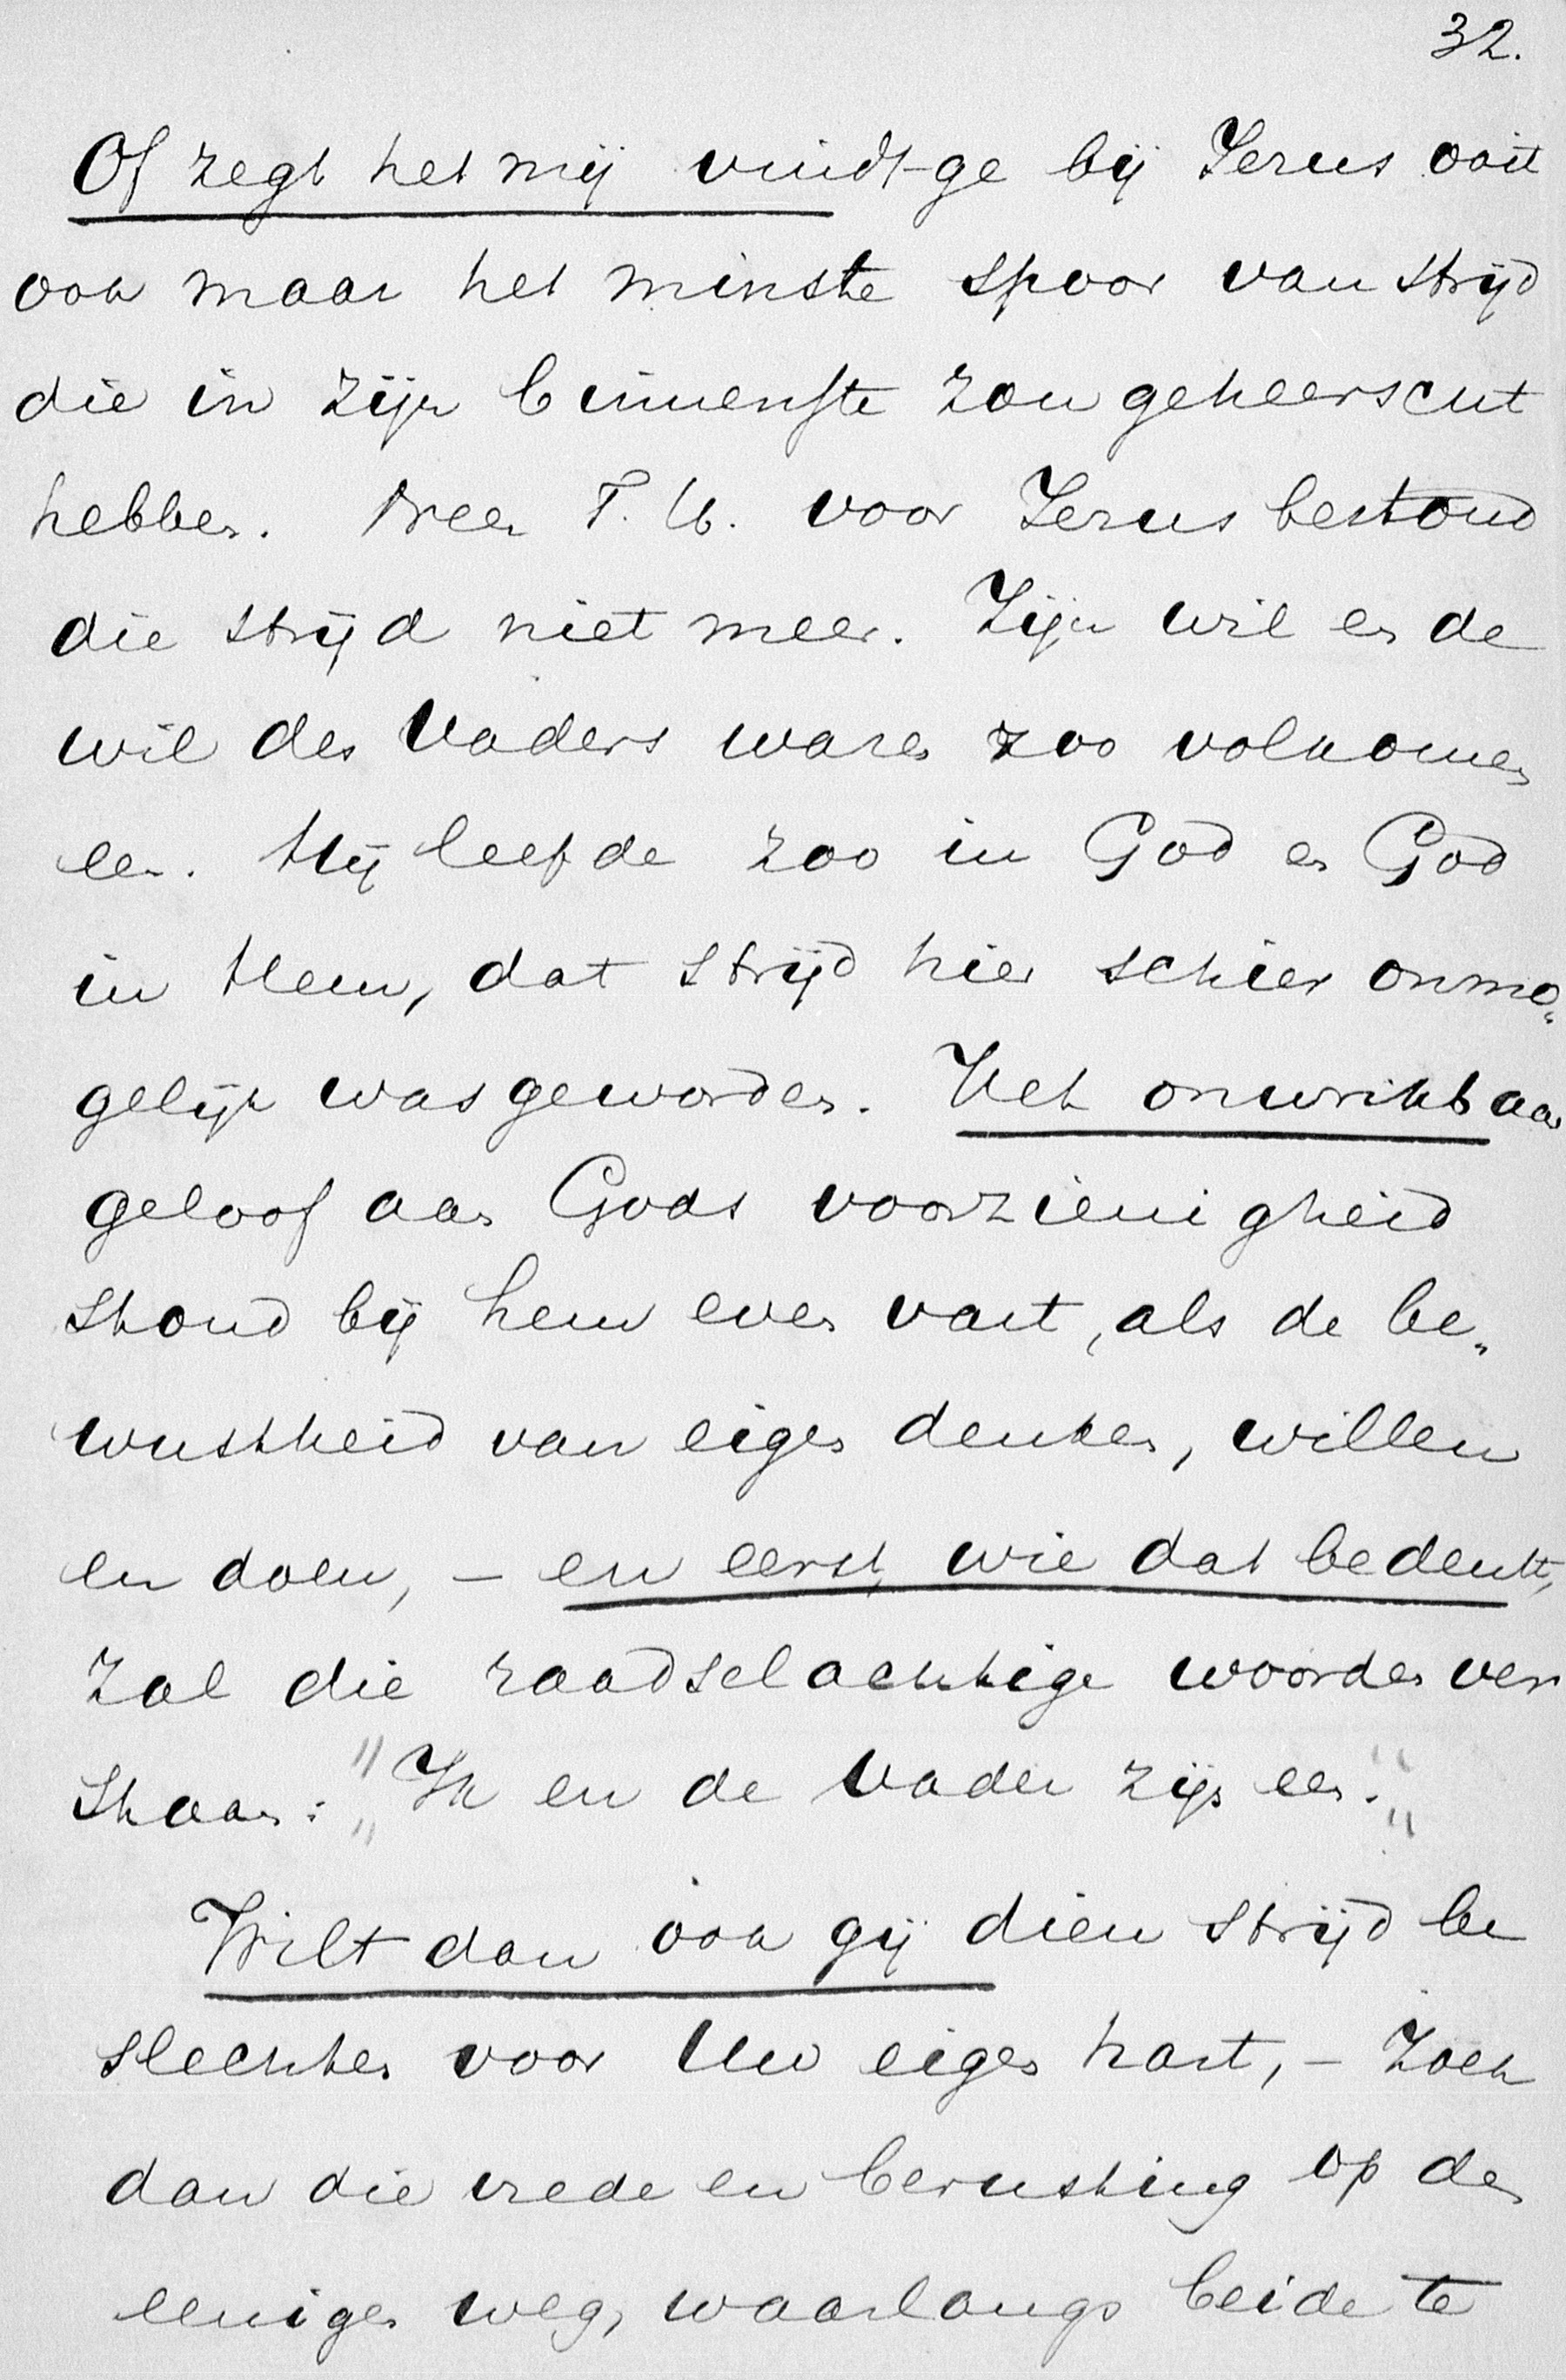 32.
Of zegt het mij vindt-ge bij Jezus ooit
ook maar het minste spoor van strijd
die in zijn binnenste zou geheerscht
hebben. Neen T. U. voor Jezus bestond
die strijd niet meer. Zijn wil en de
wil des Vaders waren zoo volkomen
een. Hij leefde zoo in God en God
in Hem, dat strijd hier schier onmo„
gelijk was geworden. Het onwrikbaar
geloof aan Gods voorzienigheid
stond bij hem even vast, als de be„
wustheid van eigen denken, willen
en doen, – en eerst, wie dat bedenkt,
zal die raadselachtige woorden ver
staan: „Ik en de Vader zijn een."
Wilt dan ook gij dien strijd be
slechten voor Uw eigen hart, – zoek
dan die vrede en berusting op den
eenigen weg, waarlangs beide te